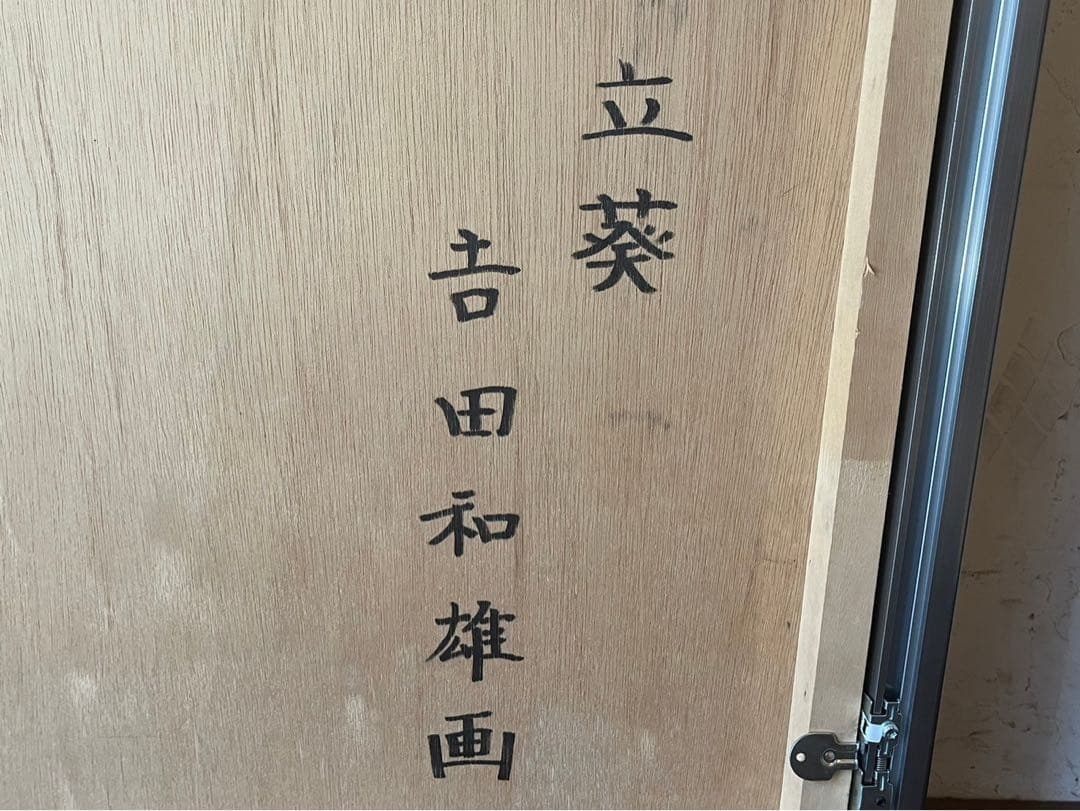 立葵
𠮷田和雄画